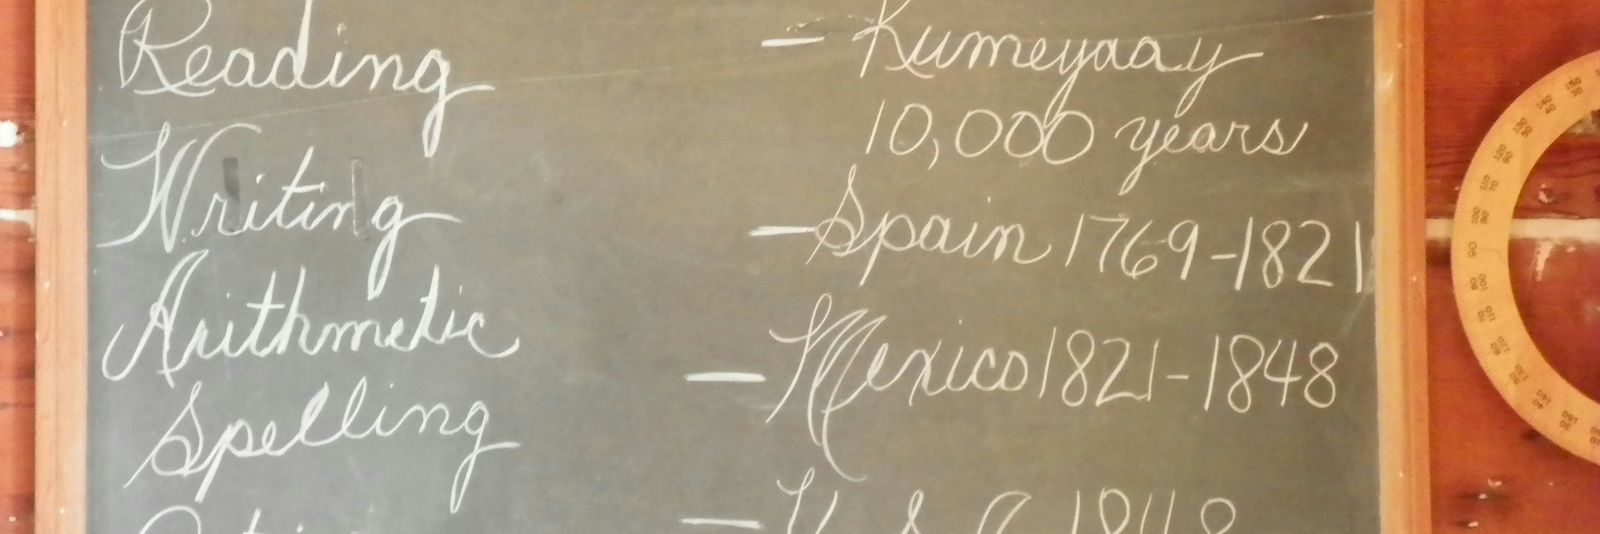 Reading
Writing
Arithmetic
Spelling
- Kumeyaay
10,000 years
- Spain 1769-1821
- Mexico 1821-1848
- U.S.A. 1848